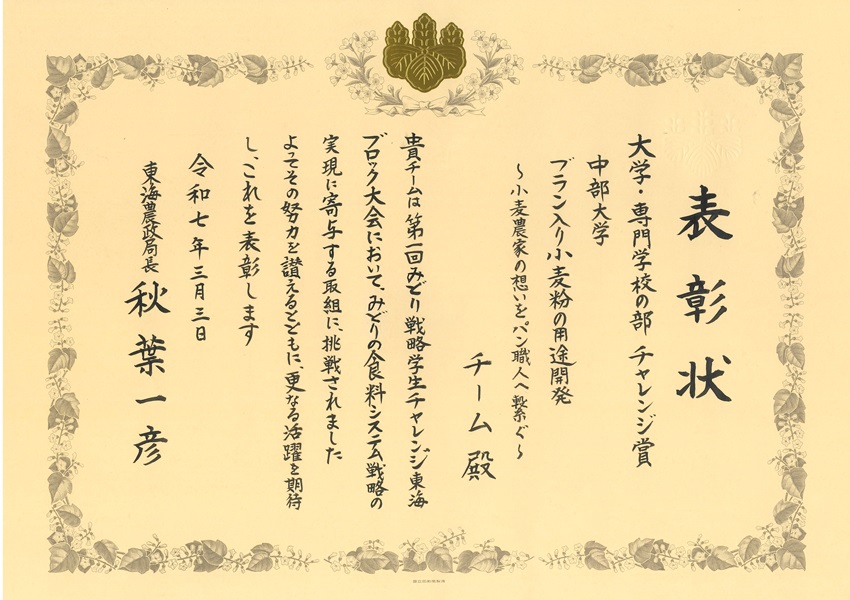 表彰状
大学・専門学校の部 チャレンジ賞
中部大学
ブラン入り小麦粉の用途開発
～小麦農家の想いをパン職人へ繋ぐ～
チーム 殿
貴チームは第一回みどり戦略学生チャレンジ東海
ブロック大会において、みどりの食料システム戦略の
実現に寄与する取組に、挑戦されました
よってその努力を讃えるとともに、更なる活躍を期待
し、これを表彰します
令和七年三月三日
東海農政局長 秋葉一彦